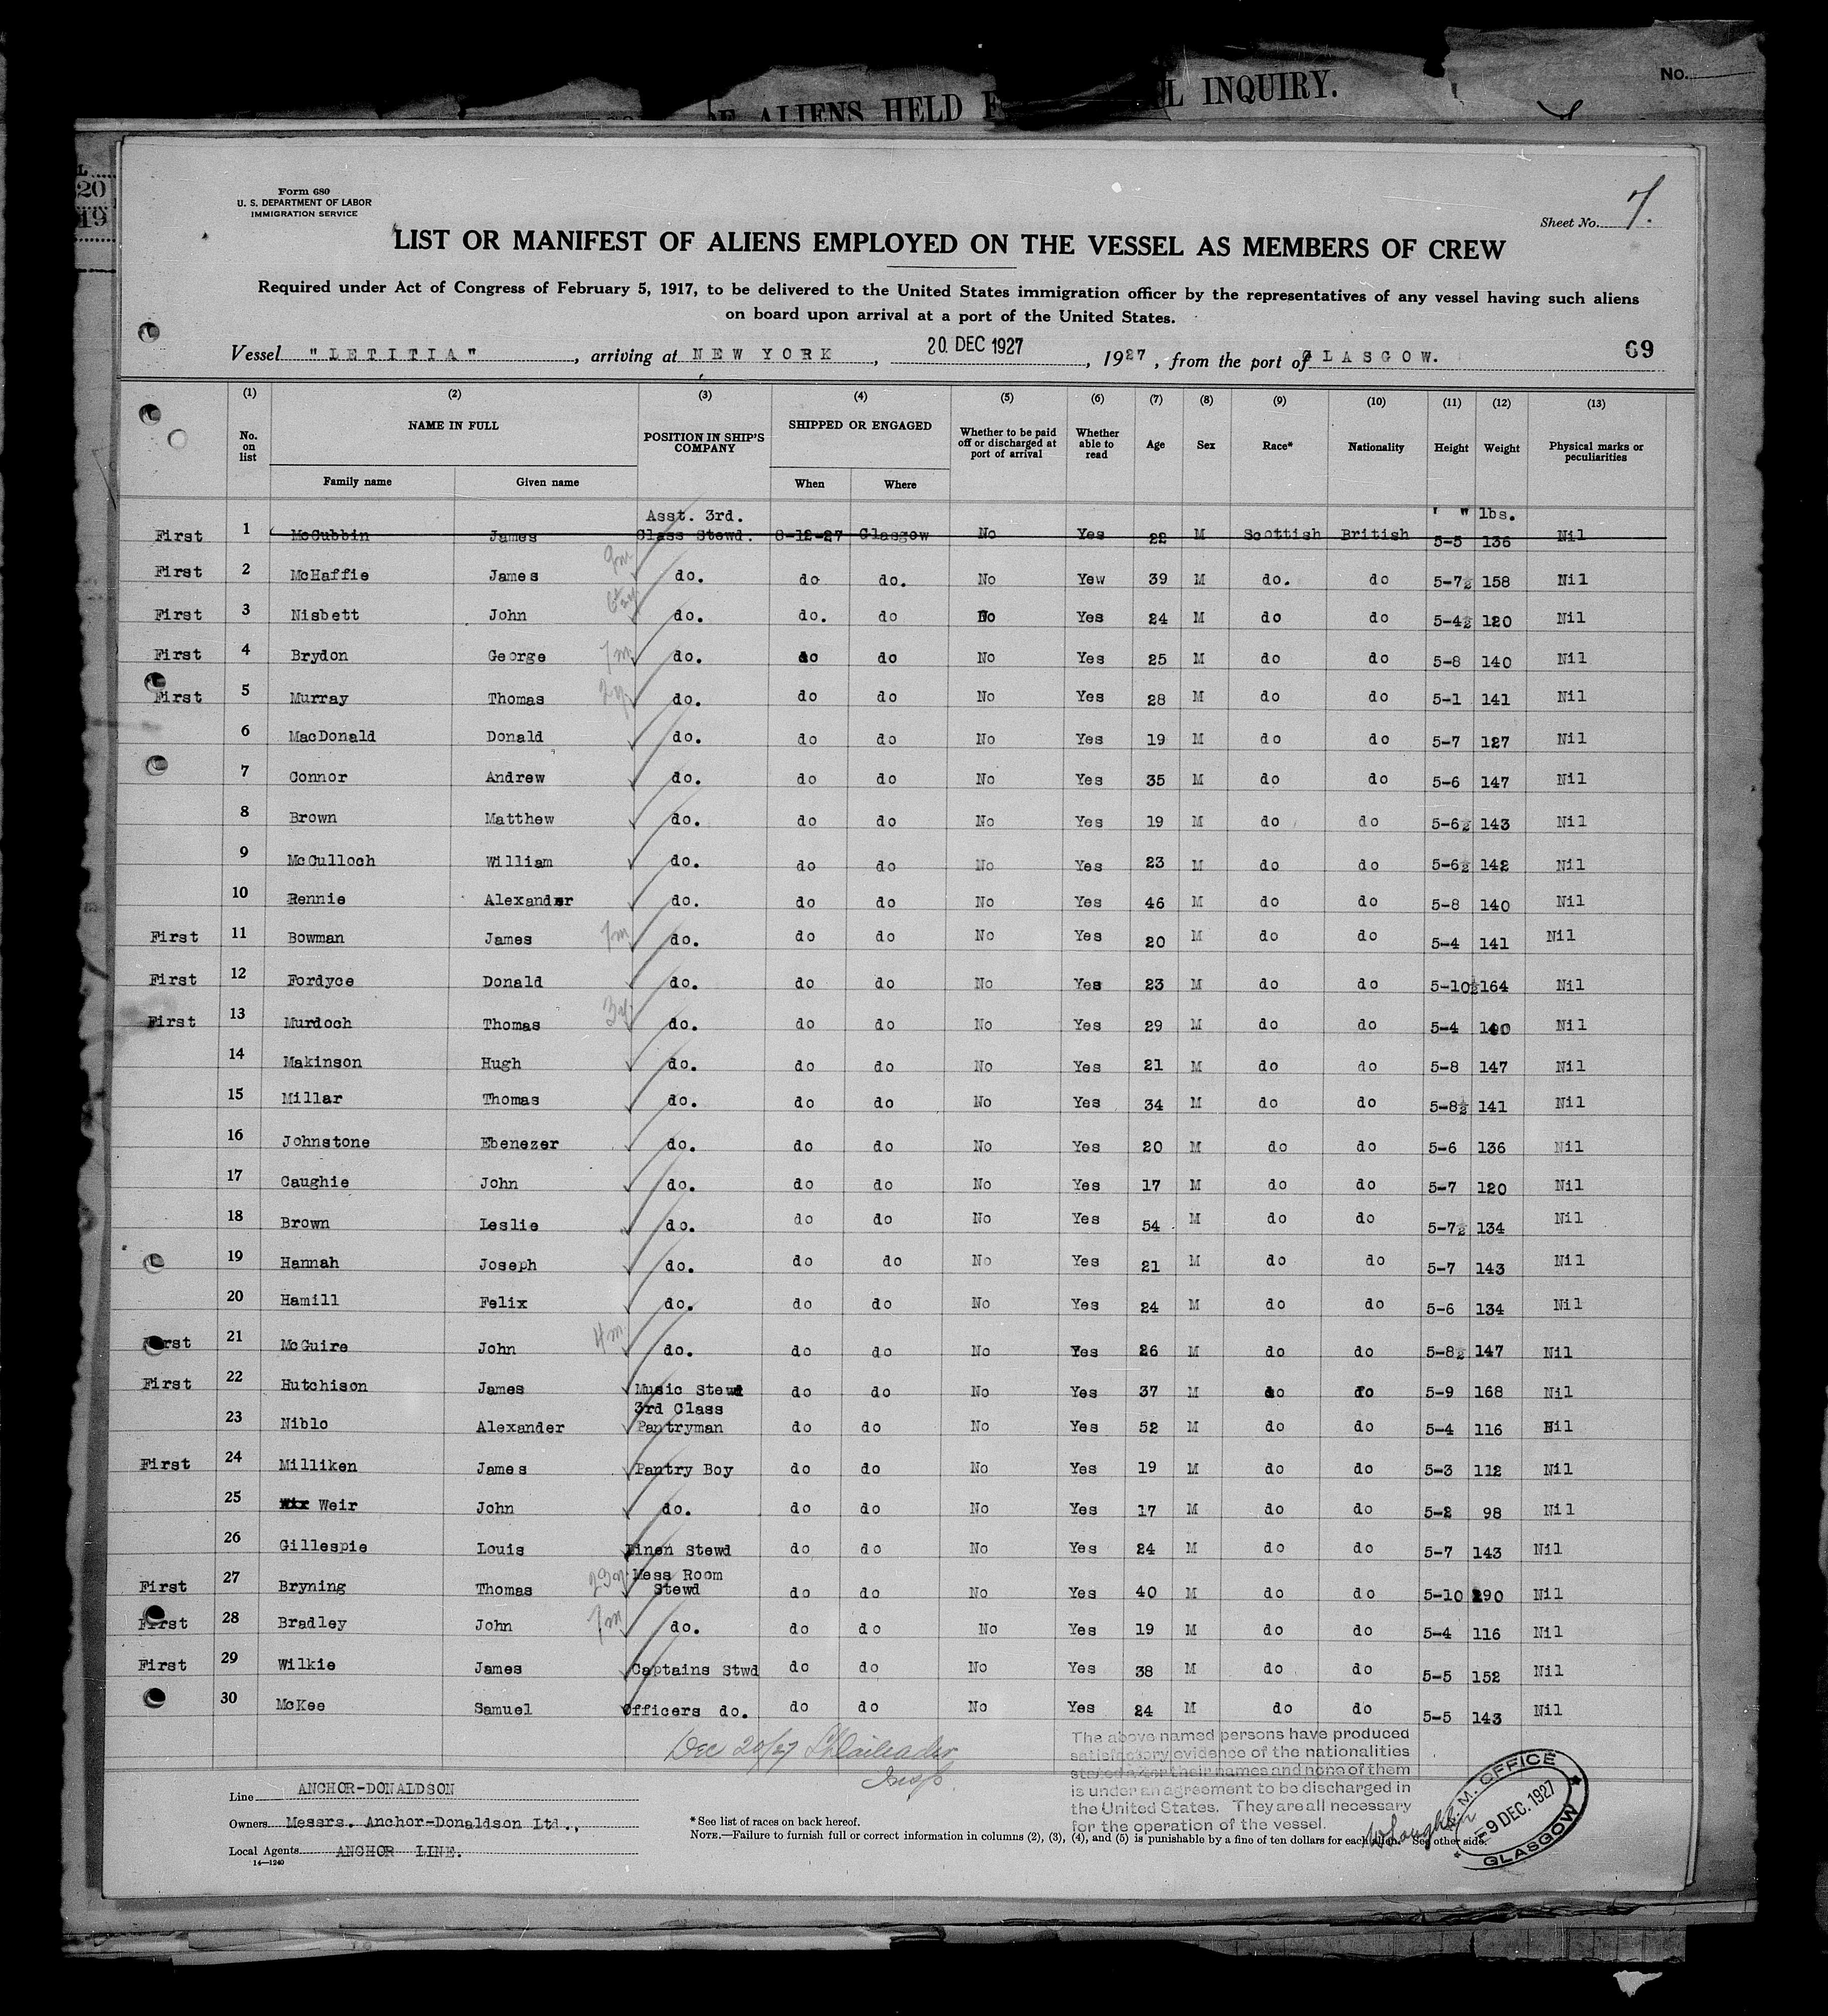 ALIENS HELD F L INQUIRY.
No.
20
19
Form 680
U. S. DEPARTMENT OF LABOR
IMMIGRATION SERVICE
Sheet No. 7.
LIST OR MANIFEST OF ALIENS EMPLOYED ON THE VESSEL AS MEMBERS OF CREW
Required under Act of Congress of February 5, 1917, to be delivered to the United States immigration officer by the representatives of any vessel having such aliens
on board upon arrival at a port of the United States.
Vessel "LETITIA", arriving at NEW YORK, 20. DEC 1927, 1927, from the port of GLASGOW. 69
(1) (2) (3) (4) (5) (6) (7) (8) (9) (10) (11) (12) (13)
No. on list NAME IN FULL POSITION IN SHIP'S COMPANY SHIPPED OR ENGAGED Whether to be paid off or discharged at port of arrival Whether able to read Age Sex Race* Nationality Height Weight Physical marks or peculiarities
Family name Given name When Where
Asst. 3rd. ' " lbs.
First 1 McCubbin James Class Stewd. 8-12-27 Glasgow No Yes 22 M Scottish British 5-5 136 Nil
First 2 McHaffie James 9m do. do do. No Yew 39 M do. do 5-7½ 158 Nil
First 3 Nisbett John do. do. do No Yes 24 M do do 5-4½ 120 Nil
First 4 Brydon George 7m do. do do No Yes 25 M do do 5-8 140 Nil
First 5 Murray Thomas 2y do. do do No Yes 28 M do do 5-1 141 Nil
6 MacDonald Donald do. do do No Yes 19 M do do 5-7 127 Nil
7 Connor Andrew do. do do No Yes 35 M do do 5-6 147 Nil
8 Brown Matthew do. do do No Yes 19 M do do 5-6½ 143 Nil
9 McCulloch William do. do do No Yes 23 M do do 5-6½ 142 Nil
10 Rennie Alexander do. do do No Yes 46 M do do 5-8 140 Nil
First 11 Bowman James 7m do. do do No Yes 20 M do do 5-4 141 Nil
First 12 Fordyce Donald do. do do No Yes 23 M do do 5-10½ 164 Nil
First 13 Murdoch Thomas 3y do. do do No Yes 29 M do do 5-4 140 Nil
14 Makinson Hugh do. do do No Yes 21 M do do 5-8 147 Nil
15 Millar Thomas do. do do No Yes 34 M do do 5-8½ 141 Nil
16 Johnstone Ebenezer do. do do No Yes 20 M do do 5-6 136 Nil
17 Caughie John do. do do No Yes 17 M do do 5-7 120 Nil
18 Brown Leslie do. do do No Yes 54 M do do 5-7½ 134 Nil
19 Hannah Joseph do. do do No Yes 21 M do do 5-7 143 Nil
20 Hamill Felix do. do do No Yes 24 M do do 5-6 134 Nil
First 21 McGuire John 4m do. do do No Yes 26 M do do 5-8½ 147 Nil
First 22 Hutchison James Music Stewd do do No Yes 37 M do do 5-9 168 Nil
3rd Class
23 Niblo Alexander Pantryman do do No Yes 52 M do do 5-4 116 Nil
First 24 Milliken James Pantry Boy do do No Yes 19 M do do 5-3 112 Nil
25 Weir John do. do do No Yes 17 M do do 5-2 98 Nil
26 Gillespie Louis Linen Stewd do do No Yes 24 M do do 5-7 143 Nil
Mess Room
First 27 Bryning Thomas Stewd do do No Yes 40 M do do 5-10 190 Nil
First 28 Bradley John 7m do. do do No Yes 19 M do do 5-4 116 Nil
First 29 Wilkie James Captains Stwd do do No Yes 38 M do do 5-5 152 Nil
30 McKee Samuel Officers do. do do No Yes 24 M do do 5-5 143 Nil
Dec 20/27
The above named persons have produced
satisfactory evidence of the nationalities
stated after their names and none of them
is under an agreement to be discharged in
the United States. They are all necessary
for the operation of the vessel.
M. OFFICE
9 DEC. 1927
GLASGOW
Line ANCHOR-DONALDSON
Owners Messrs. Anchor-Donaldson Ltd.,
Local Agents ANCHOR LINE.
14—1240
*See list of races on back hereof.
NOTE.—Failure to furnish full or correct information in columns (2), (3), (4), and (5) is punishable by a fine of ten dollars for each alien. See other side.